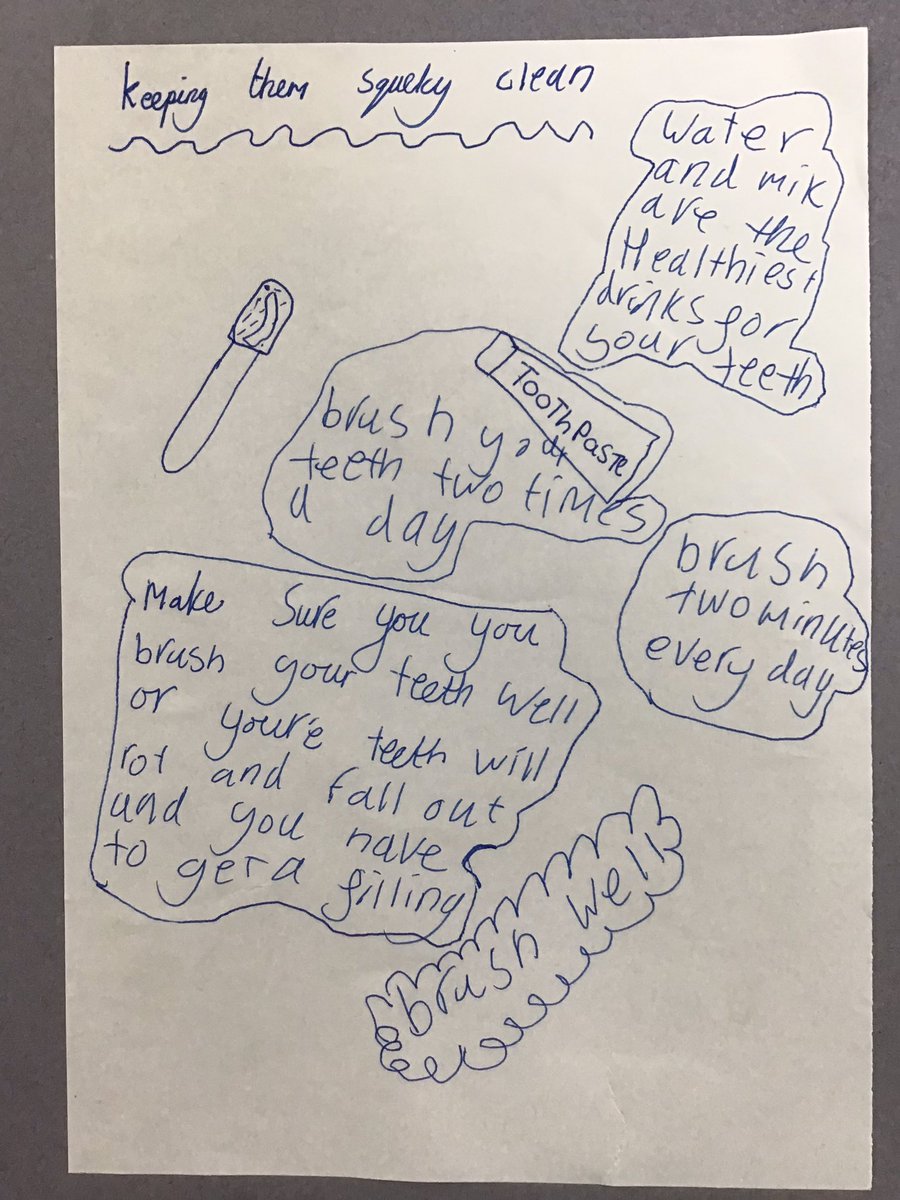 keeping them squeky clean
Water
and mik
are the
Healthiest
drinks for
your teeth
TOOTHPASTE
brush your
teeth two times
a day
brush
two minutes
every day
Make Sure you you
brush your teeth well
or youre teeth will
rot and fall out
and you have
to get a filling
brush well